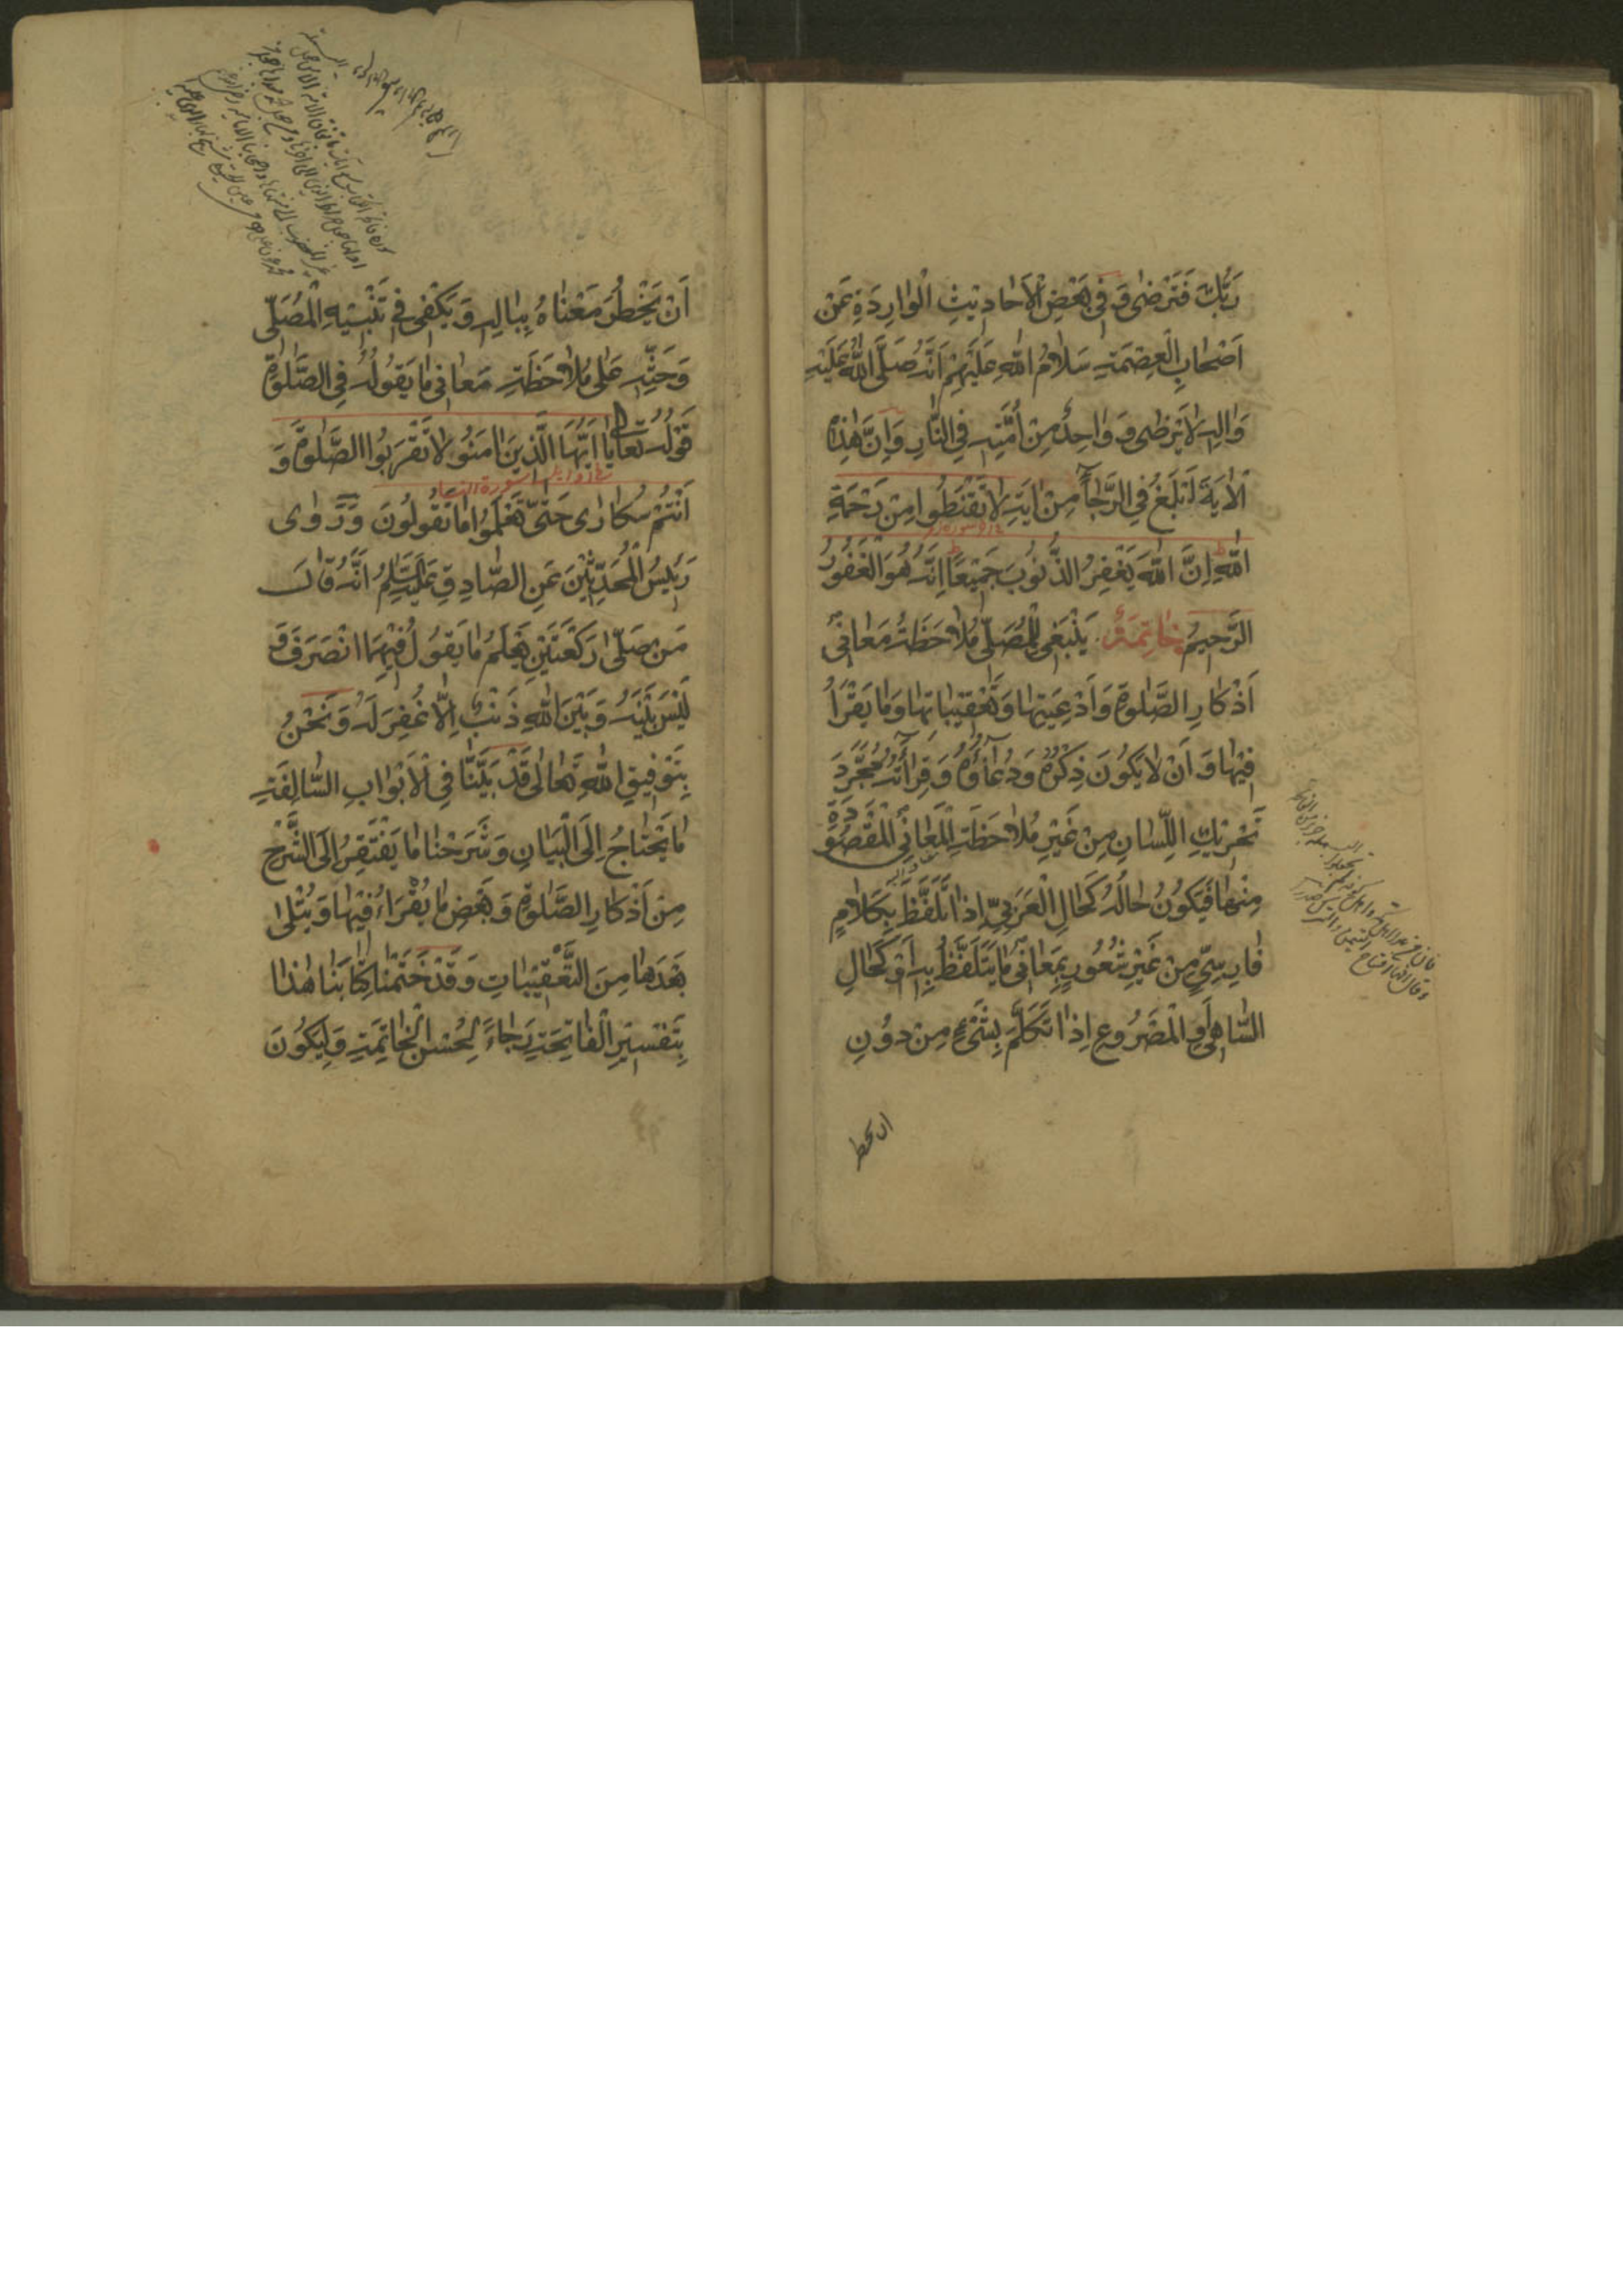 رَبُّكَ فَتَرْضٰى وَ فِى بَعْضِ الْاَحَادِيْثِ الْوَارِدَةِ عَنْ
اَصْحَابِ الْعِصْمَةِ سَلَامُ اللّٰهِ عَلَيْهِمْ اَنَّهُ صَلَّى اللّٰهُ عَلَيْهِ
وَاٰلِهِ لَا يَرْضٰى وَ وَاحِدٌ مِنْ اُمَّتِهِ فِى النَّارِ وَ اِنَّ هٰذِهِ
الْاٰيَةَ لَتَبْلُغُ فِى الرَّجَاۤءِ مِنْ اٰيَةِ لَا تَقْنَطُوا مِنْ رَحْمَةِ
اللّٰهِ اِنَّ اللّٰهَ يَغْفِرُ الذُّنُوبَ جَمِيْعًا اِنَّهُ هُوَ الْغَفُوْرُ
الرَّحِيْمُ خَاتِمَةٌ يَنْبَغِى لِلْمُصَلِّى مُلَاحَظَةُ مَعَانِى
اَذْكَارِ الصَّلٰوةِ وَ اَدْعِيَتِهَا وَ تَعْقِيْبَاتِهَا وَ مَا يَقْرَاُ
فِيْهَا وَ اَنْ لَا يَكُوْنَ ذِكْرُهُ وَ دُعَاۤؤُهُ وَ قِرَاۤئَتُهُ مُجَرَّدَ
تَحْرِيْكِ اللِّسَانِ مِنْ غَيْرِ مُلَاحَظَةِ الْمَعَانِى الْمَقْصُوْدَةِ
مِنْهَا فَيَكُوْنُ حَالُهُ كَحَالِ الْعَرَبِىِّ اِذَا تَلَفَّظَ بِكَلَامٍ
فَارِسِىٍّ مِنْ غَيْرِ شُعُوْرٍ بِمَعَانِى مَا يَتَلَفَّظُ بِهِ اَوْ كَحَالِ
السَّاهِى وَ الْمَصْرُوْعِ اِذَا تَكَلَّمَ بِشَىْءٍ مِنْ دُوْنِ
ان يخطر
اَنْ يَخْطُرَ مَعْنَاهُ بِبَالِهِ وَ يَكْفِى فِى تَنْبِيْهِ الْمُصَلِّى
وَ حَثِّهِ عَلٰى مُلَاحَظَةِ مَعَانِى مَا يَقُوْلُهُ فِى الصَّلٰوةِ
قَوْلُهُ تَعَالٰى يَا اَيُّهَا الَّذِيْنَ اٰمَنُوْ لَا تَقْرَبُوا الصَّلٰوةَ وَ
سورة النساء
اَنْتُمْ سُكَارٰى حَتّٰى تَعْلَمُوا مَا تَقُوْلُوْنَ وَ رَوٰى
رَئِيْسُ الْمُحَدِّثِيْنَ عَنِ الصَّادِقِ عَلَيْهِ السَّلَامُ اَنَّهُ قَالَ
مَنْ صَلّٰى رَكْعَتَيْنِ يَعْلَمُ مَا يَقُوْلُ فِيْهِمَا انْصَرَفَ وَ
لَيْسَ بَيْنَهُ وَ بَيْنَ اللّٰهِ ذَنْبٌ اِلَّا غُفِرَ لَهُ وَ نَحْنُ
بِتَوْفِيْقِ اللّٰهِ تَعَالٰى قَدْ بَيَّنَّا فِى الْاَبْوَابِ السَّالِفَةِ
مَا يَحْتَاجُ اِلَى الْبَيَانِ وَ شَرَحْنَا مَا يَفْتَقِرُ اِلَى الشَّرْحِ
مِنْ اَذْكَارِ الصَّلٰوةِ وَ بَعْضِ مَا يُقْرَاءُ فِيْهَا وَ يُتْلٰى
بَعْدَهَا مِنَ التَّعْقِيْبَاتِ وَ قَدْ خَتَمْنَا كِتَابَنَا هٰذَا
بِتَفْسِيْرِ الْفَاتِحَةِ رَجَاءً لِحُسْنِ الْخَاتِمَةِ وَ لِيَكُوْنَ